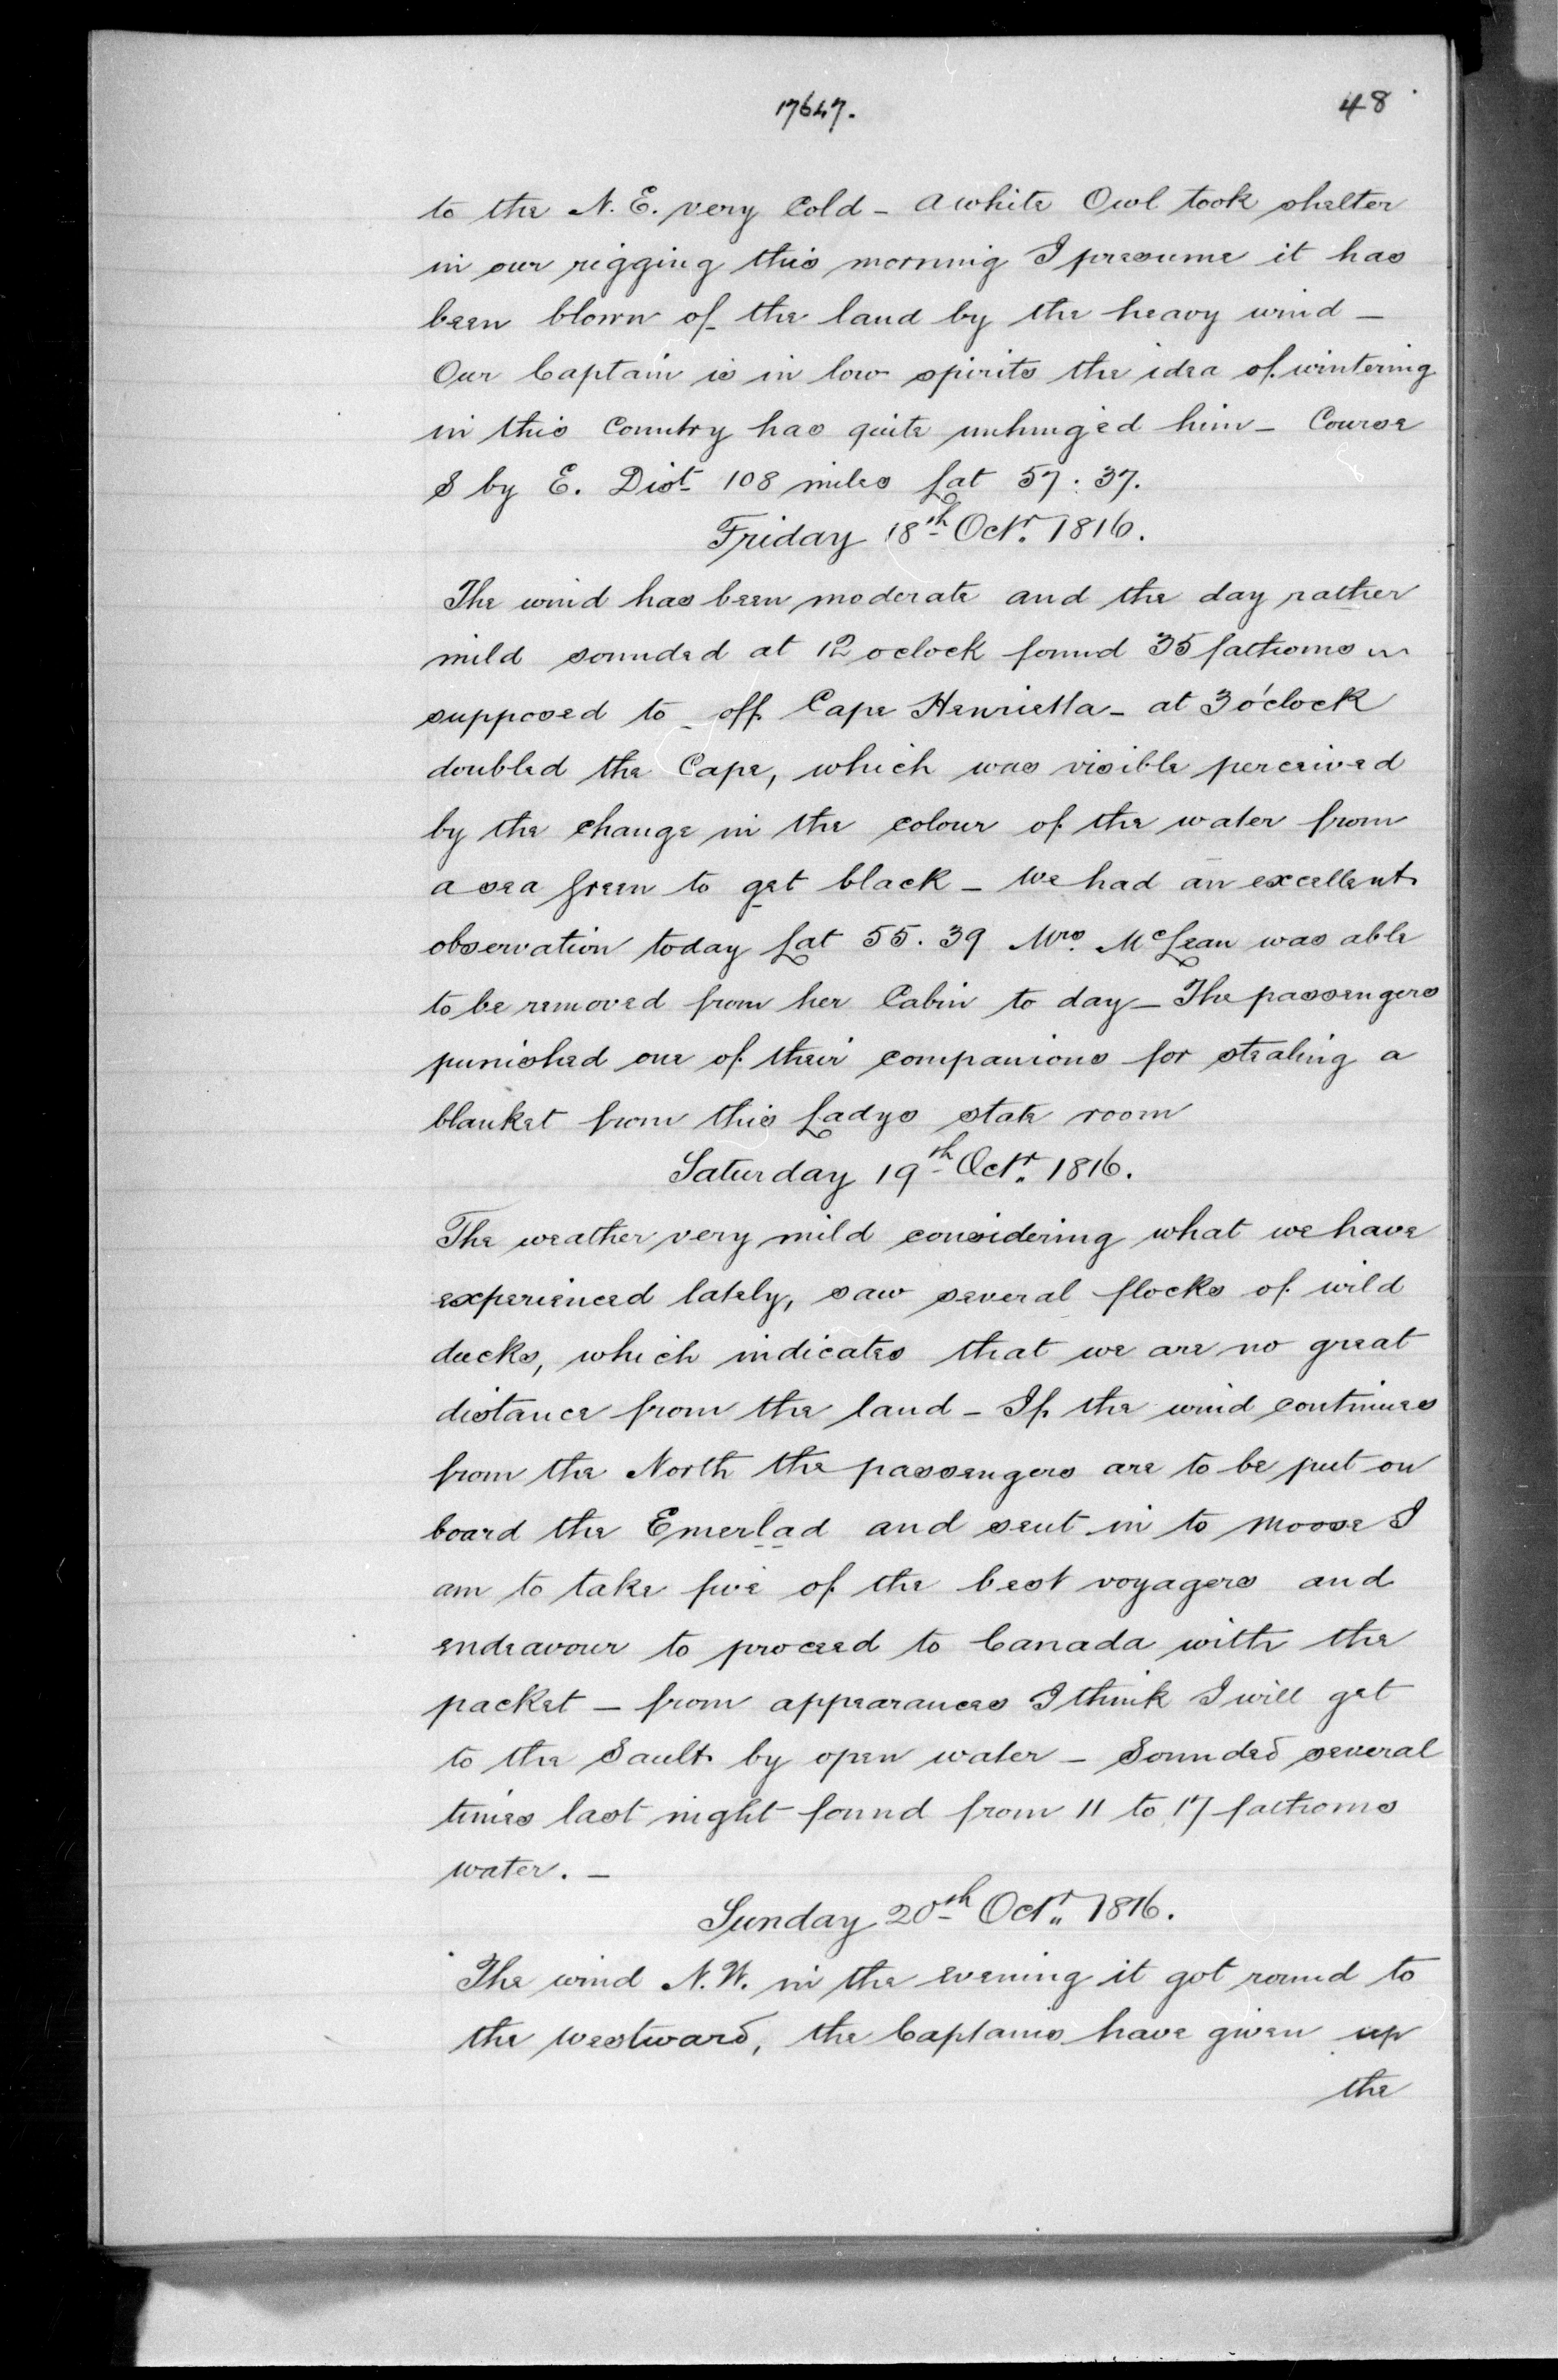 17647.
48
to the N. E. very Cold - a white Owl took shelter
in our rigging this morning I presume it has
been blown of the land by the heavy wind -
Our Captain is in low spirits the idea of wintering
in this Country has quite unhinged him - Course
S by E. Dist 108 miles Lat 57 : 37.
Friday 18th Octr. 1816.
The wind has been moderate and the day rather
mild sounded at 12 oclock found 35 fathoms
supposed to off Cape Henrietta - at 3 o'clock
doubled the Cape, which was visible perceived
by the change in the colour of the water from
a sea green to get black - we had an excellent
observation today Lat 55. 39 Mrs. McLean was able
to be removed from her Cabin to day - The passengers
punished one of their companions for stealing a
blanket from this Ladys state room
Saturday 19th Octr. 1816.
The weather very mild considering what we have
experienced lately, saw several flocks of wild
ducks, which indicates that we are no great
distance from the land - If the wind continues
from the North the passengers are to be put on
board the Emerlad and sent in to Moose I
am to take five of the best voyagers and
endeavour to proceed to Canada with the
packet - from appearances I think I will get
to the Sault by open water - Sounded several
times last night found from 11 to 17 fathoms
water. -
Sunday 20th Octr. 1816.
The wind N. W. in the evening it got round to
the westward, the Captains have given up
the